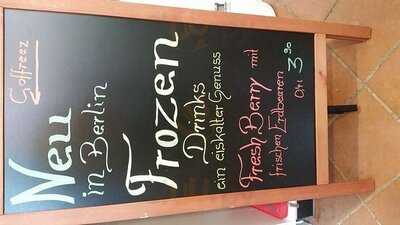 Golfreez
Neu
in Berlin
Frozen
Drinks
ein eiskalter Genuss
Fresh Berry mit
frischen Erdbeeren
0,4l 3,90